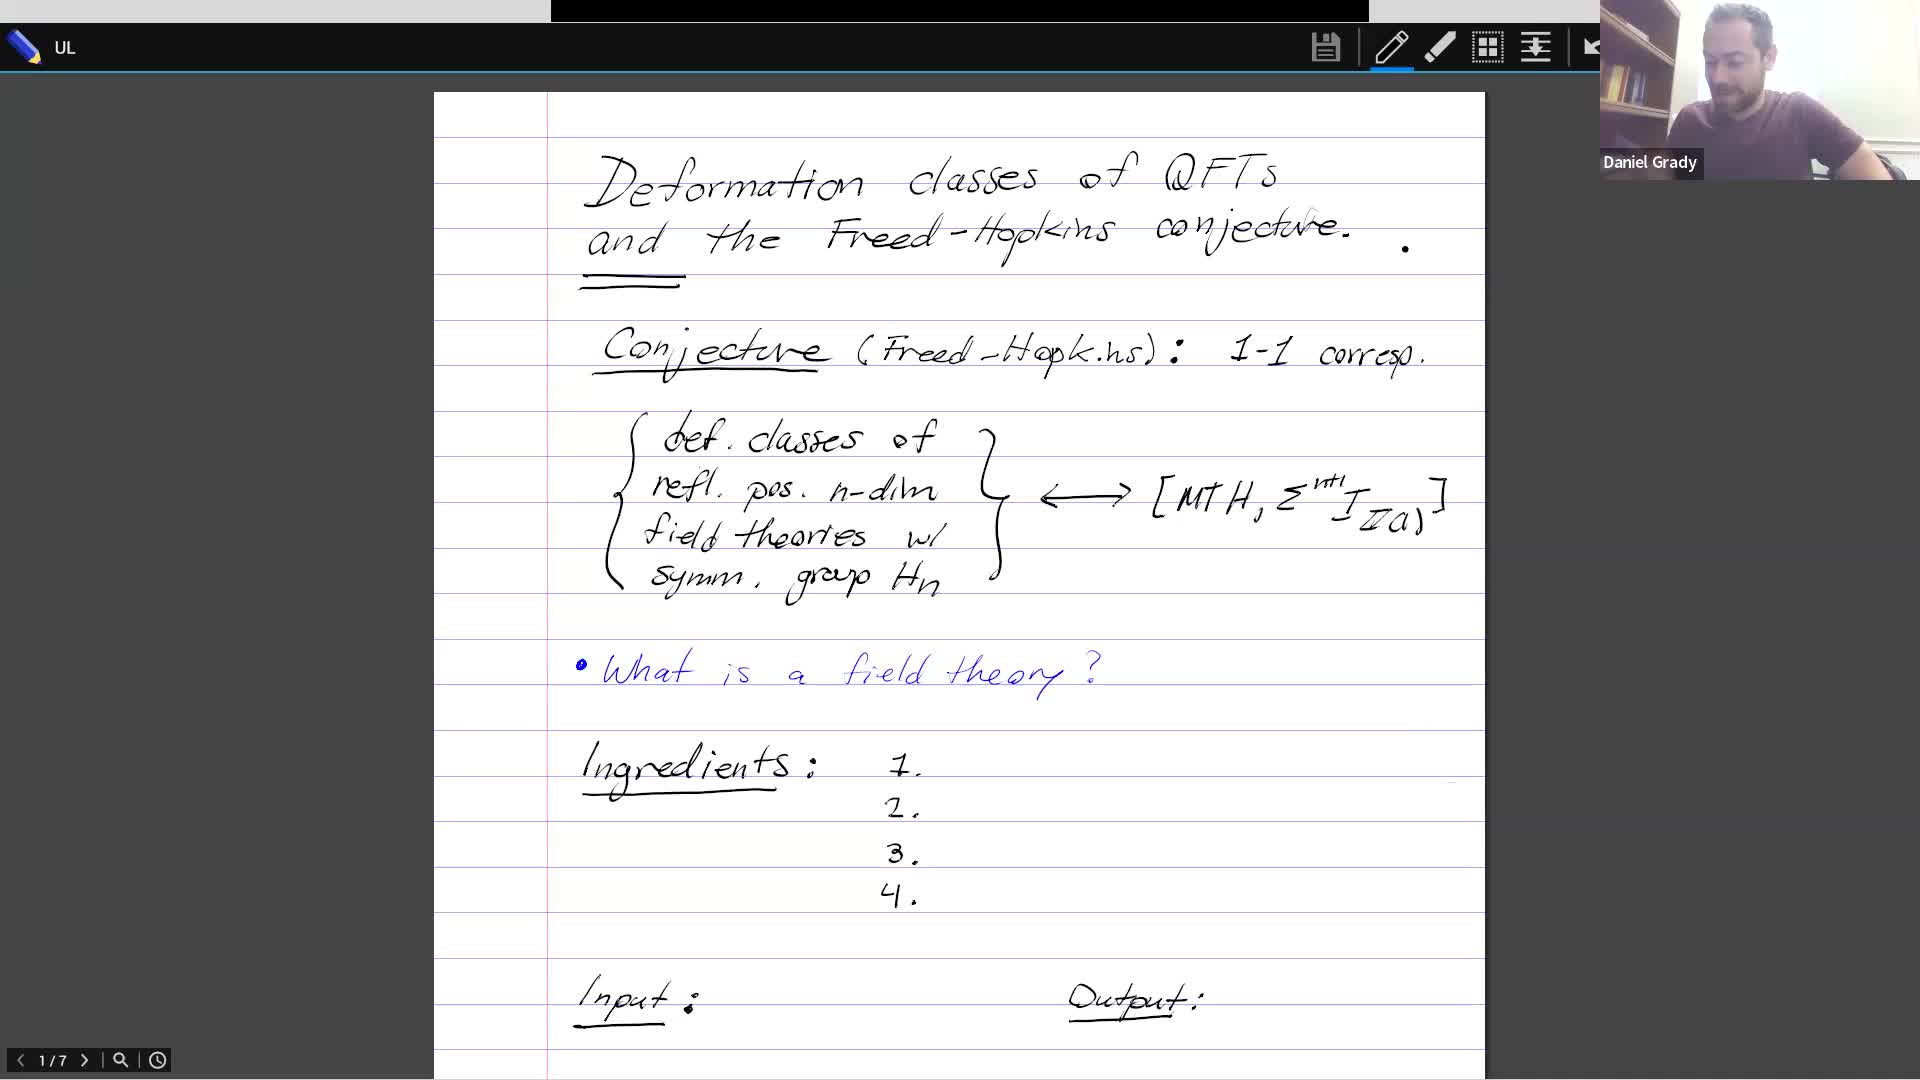 UL
Daniel Grady
Deformation classes of QFTs
and the Freed-Hopkins conjecture.
Conjecture (Freed-Hopkins): 1-1 corresp.
{ def. classes of
refl. pos. n-dim
field theories w/
symm. group Hn } ↔ [MTH, Σ^{n+1} I_{ℤ(1)}]
• What is a field theory?
Ingredients: 1.
2.
3.
4.
Input: Output:
1/7